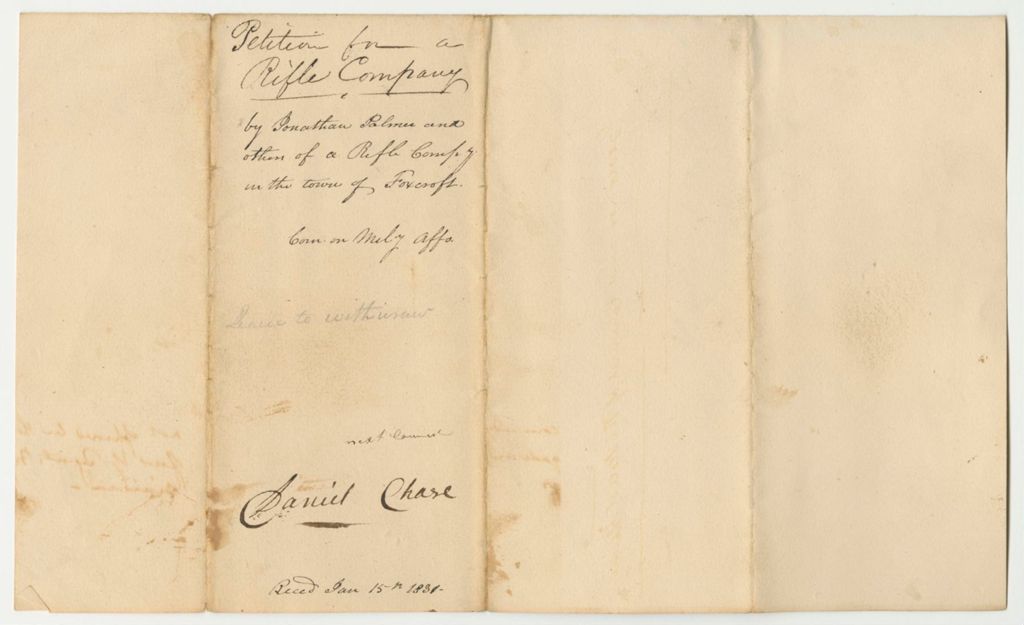 Petition for a
Rifle Company
by Jonathan Palmer and
others of a Rifle Compy
in the town of Foxcroft.
Com on Mily Affs.
Leave to withdraw
next Council
Daniel Chase
Recd Jan 15th 1831-